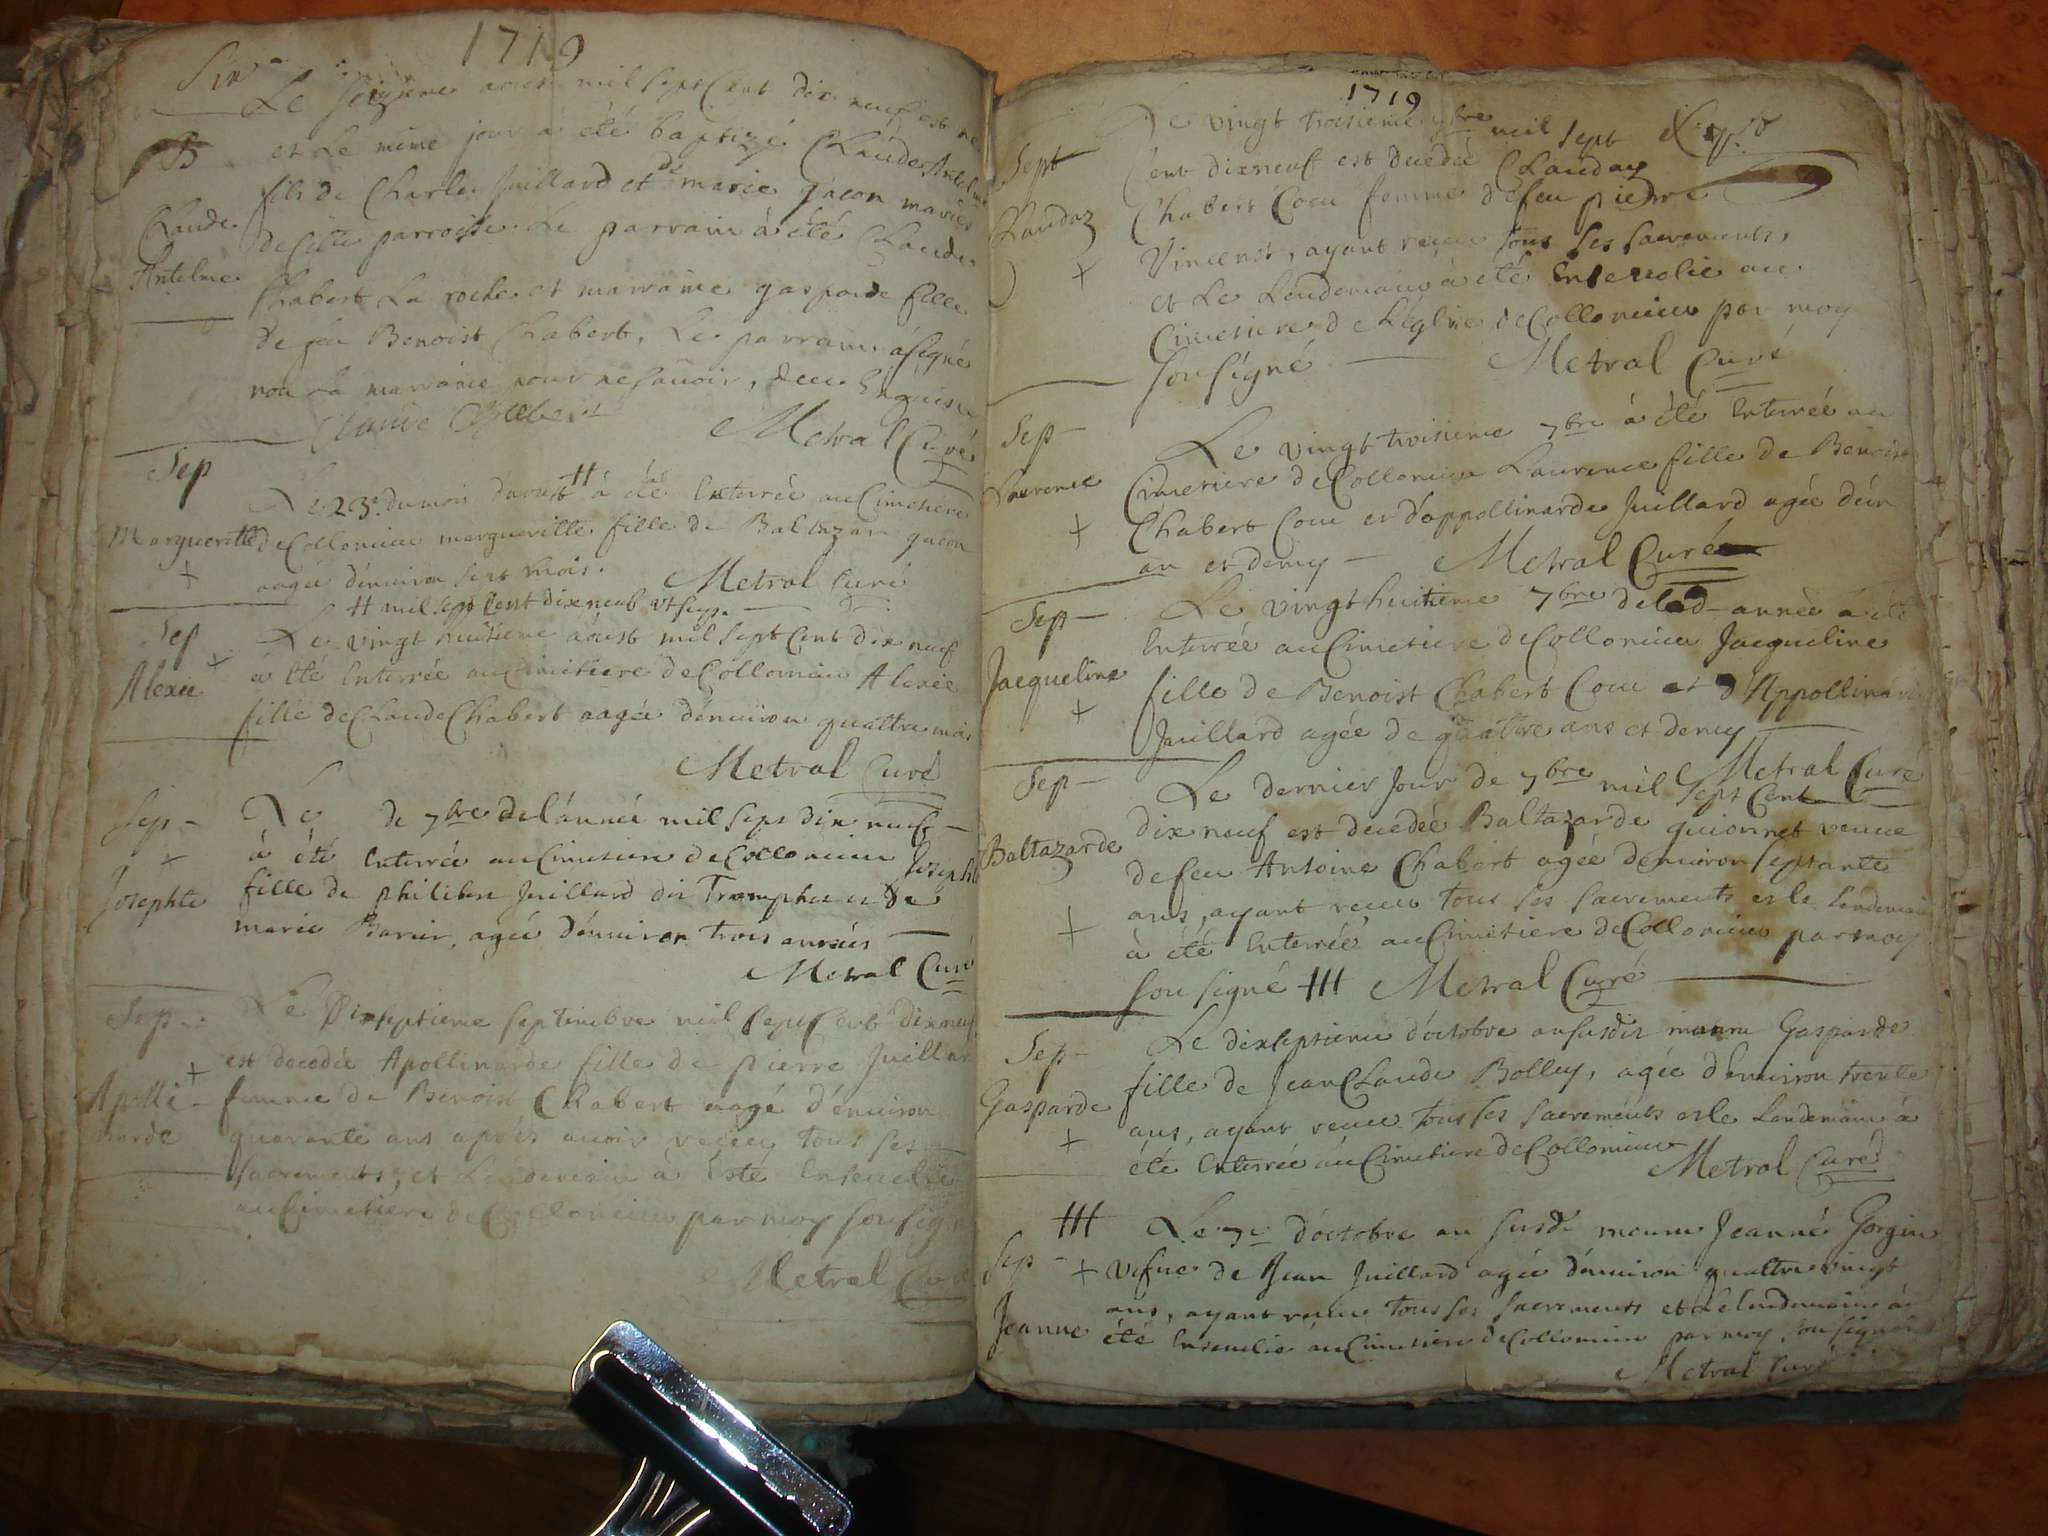 1719
Le seizieme aoust mil sept Cent dix neuf est né
B
et Le même jour a été baptizé Claude Antelme
fils de Charles Juillard et de marie gacon mariés
Claude
Antelme
de cette parroisse. Le parrain à été Claude
Chabert La roche et marraine gasparde fille
de feu Benoist Chabert, Le parrain a signé
non la marraine pour ne sçavoir, de ce Enquise
Metral Curé
Sep
Margueritte
+
Le 23e du mois d'aoust # à été Enterrée au Cimetiere
de Collomieu margueritte fille de Baltazar gacon
aagée d'enuiron sept mois.
Metral Curé
# mil sept Cent dix neuf
Sep
+
Alexie
Le vingt huitieme aoust mil sept Cent dix neuf
a été Enterrée au Cimitiere de Collomieu Alexie
fille de Claude Chabert aagée d'enuiron quattre mois
Metral Curé
Sep
+
Josephte
Le de 7bre de l'année mil sept dix neuf
à été Enterrée au Cimetiere de Collomieu Josephte
fille de philibert Juillard dit et de
marie agée d'enuiron trois années
Metral Curé
Sep
+
Apolli-
narde
Le Dixseptieme septembre mil sept Cent dixneuf
est decedée Apollinarde fille de pierre Juillard
femme de Benoist Chabert aagé d'enuiron
quarante ans apres avoir receu tous ses
sacrements, et Lendemain a esté Enseuelie
au Cimetiere de Collomieu par moy soussigné
Metral Curé
1719
Sept
Claudaz
+
Le vingt troisieme 7bre mil sept
Cent dixneuf est decedée Claudaz
Chabert Cocu femme de feu pierre
Vincenot, ayant receu tous ses sacrements,
et Le Lendemain a été Enseuelie au
Cimetiere de L'église de Collomieu par moy
soussigné
Metral Curé
Sep
Laurence
+
Le vingt troisieme 7bre à été Enterrée au
Cimetiere de Collomieu Laurence fille de Benoist
Chabert Cocu et d'appollinarde Juillard agée d'un
an et demy Metral Curé
Sep
Jacqueline
+
Le vingt huitieme 7bre de lad année a été
Enterrée au Cimetiere de Collomieu Jacqueline
fille de Benoist Chabert Cocu et d'Appollinarde
Juillard agée de quattre ans et demy
Metral Curé
Sep
Baltazarde
+
Le dernier Jour de 7bre mil sept Cent
dix neuf est decedée Baltazarde guionnet veuue
de feu Antoine Chabert agée d'enuiron septante
ans, ayant receu tous ses sacrements et le Lendemain
à été Enterrée au Cimetiere de Collomieu par moy
soussigné Metral Curé
Sep
Gasparde
+
Le dixseptieme d'octobre an susdit mourru Gasparde
fille de Jean Claude Bolley, agée d'enuiron trente
ans, ayant receu tous ses sacrements et le Lendemain à
été Enterrée au Cimetiere de Collomieu
Metral Curé
Sep
+
Jeanne
Le 7e d'octobre an susd mourru Jeanne Gorgin
vefue de Jean Juillard agée d'enuiron quattre vingt
ans, ayant receu tous ses sacrements et le lendemain à
été Enseuelie au Cimetiere de Collomieu par moy soussigné
Metral Curé